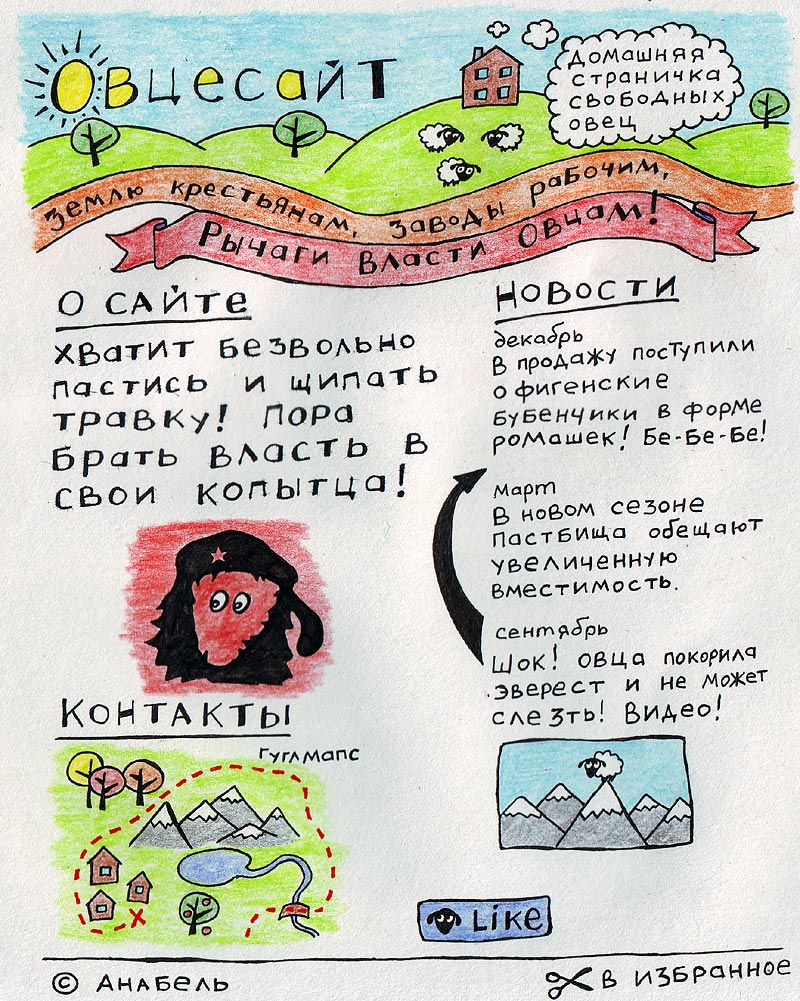 Овцесайт
домашняя
страничка
свободных
овец
Землю крестьянам, заводы рабочим,
Рычаги власти Овцам!
О сайте
Хватит безвольно
пастись и щипать
травку! Пора
брать власть в
свои копытца!
Контакты
Гуглмапс
Новости
декабрь
В продажу поступили
офигенские
бубенчики в форме
ромашек! Бе-Бе-Бе!
март
В новом сезоне
пастбища обещают
увеличенную
вместимость.
сентябрь
Шок! Овца покорила
Эверест и не может
слезть! Видео!
Like
© Анабель
В избранное